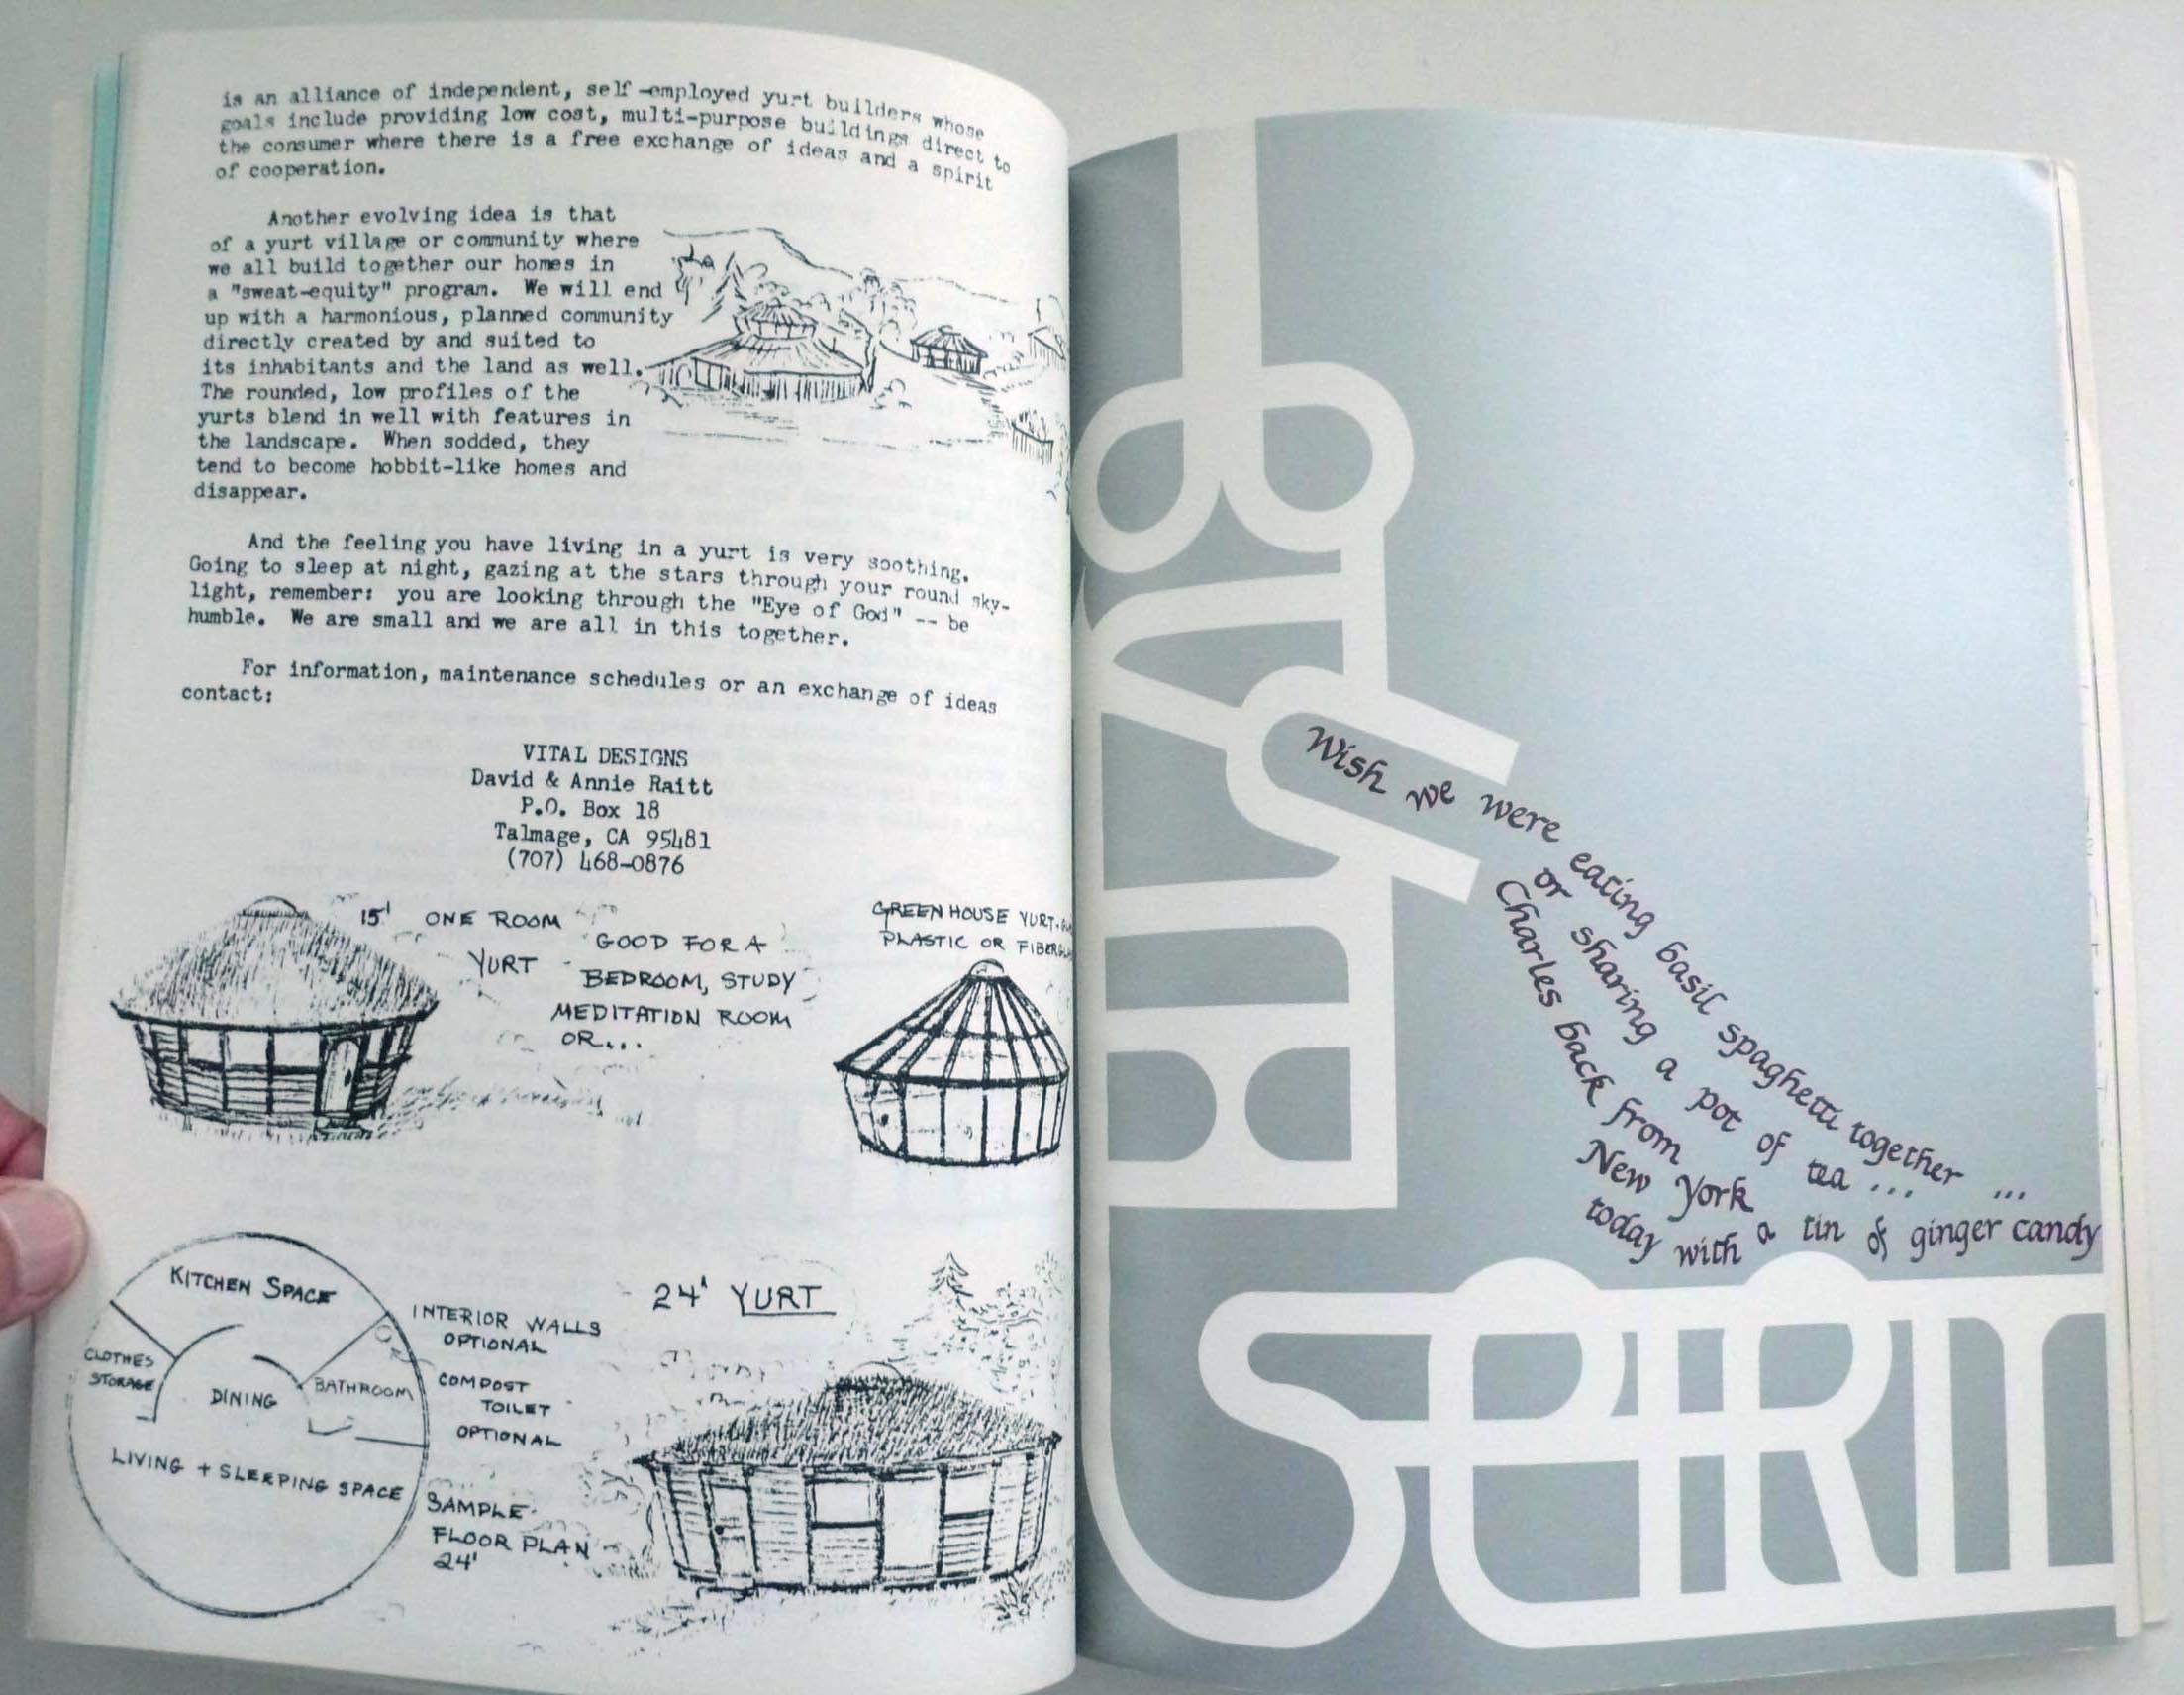 is an alliance of independent, self-employed yurt builders whose
goals include providing low cost, multi-purpose buildings direct to
the consumer where there is a free exchange of ideas and a spirit
of cooperation.
Another evolving idea is that
of a yurt village or community where
we all build together our homes in
a "sweat-equity" program. We will end
up with a harmonious, planned community
directly created by and suited to
its inhabitants and the land as well.
The rounded, low profiles of the
yurts blend in well with features in
the landscape. When sodded, they
tend to become hobbit-like homes and
disappear.
And the feeling you have living in a yurt is very soothing.
Going to sleep at night, gazing at the stars through your round sky-
light, remember: you are looking through the "Eye of God" -- be
humble. We are small and we are all in this together.
For information, maintenance schedules or an exchange of ideas
contact:
VITAL DESIGNS
David & Annie Raitt
P.O. Box 18
Talmage, CA 95481
(707) 468-0876
15' ONE ROOM
YURT -
GOOD FOR A
BEDROOM, STUDY
MEDITATION ROOM
OR...
GREEN HOUSE YURT-
PLASTIC OR
KITCHEN SPACE
CLOTHES
STORAGE
DINING
BATHROOM
LIVING + SLEEPING SPACE
INTERIOR WALLS
OPTIONAL
COMPOST
TOILET
OPTIONAL
SAMPLE
FLOOR PLAN
24'
24' YURT
Wish we were eating basil spaghetti together ...
or sharing a pot of tea ...
Charles back from
New York
today with a tin of ginger candy
SPIRIT